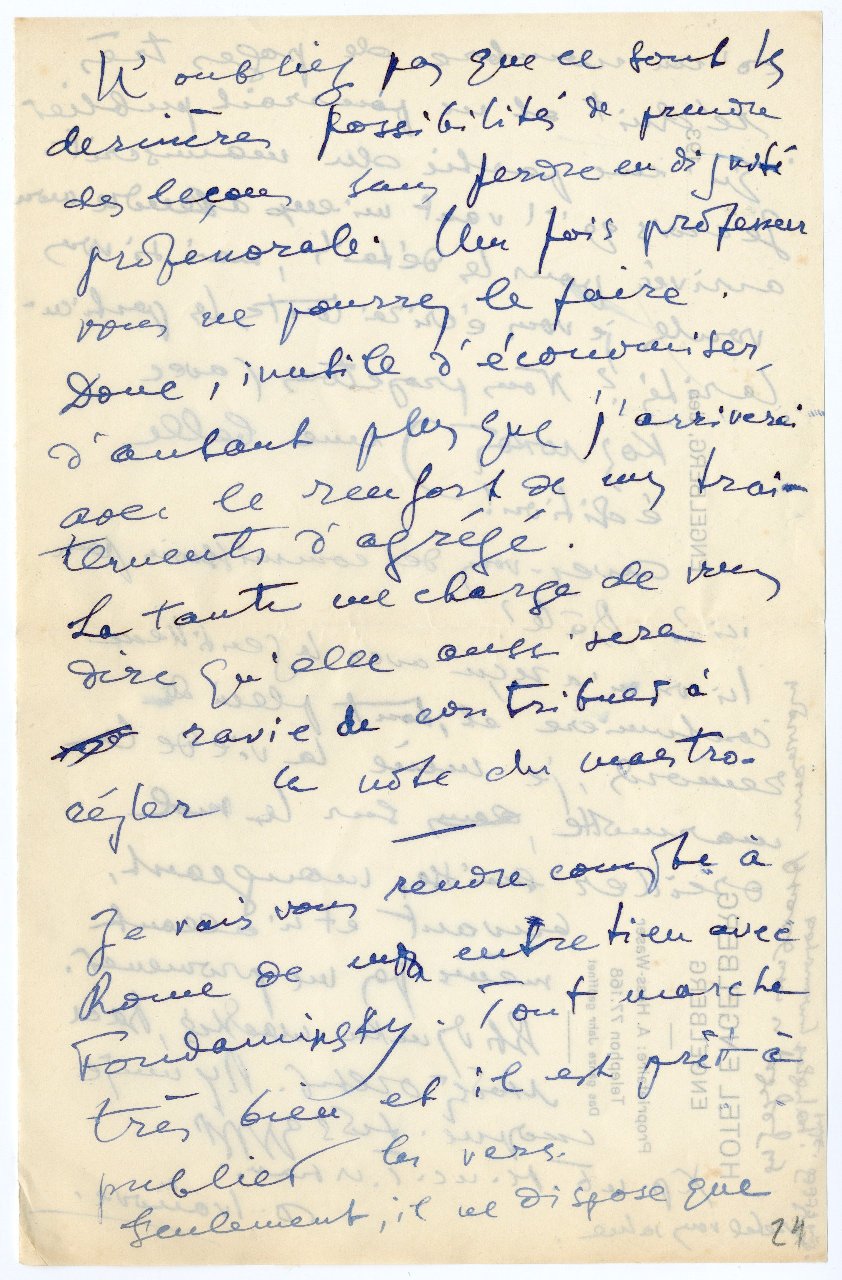 N'oubliez pas que ce sont les
dernières possibilités de prendre
des leçons sans perdre en dignité
professorale. Une fois professeur
vous ne pourrez le faire.
Donc, inutile d'économiser,
d'autant plus que j'arriverai
avec le renfort de mes trai-
tements d'agrégé.
La tante me charge de vous
dire qu'elle aussi sera
ravie de contribuer à
régler la note du maestro.
Je vais vous rendre compte à
Rome de mon entretien avec
Fondaminsky. Tout marche
très bien et il est prêt à
publier les vers.
Seulement, il ne dispose que
24